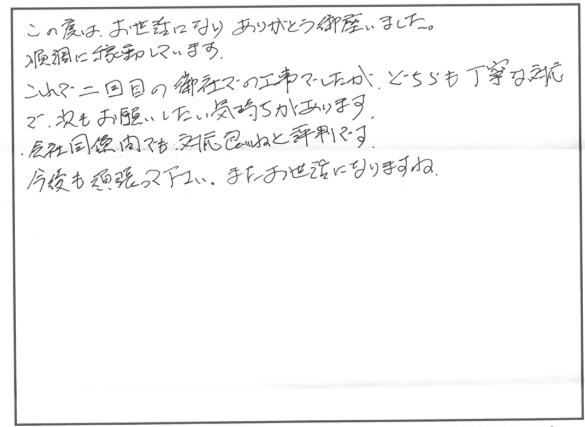 この度は、お世話になり ありがとう御座いました。
順調に稼動しています。
これで二回目の御社での工事でしたが、どちらも丁寧な対応
で、次もお願いしたい気持ちがあります。
会社関係内でも、対応良いねと評判です。
今後も頑張って下さい。またお世話になりますね。